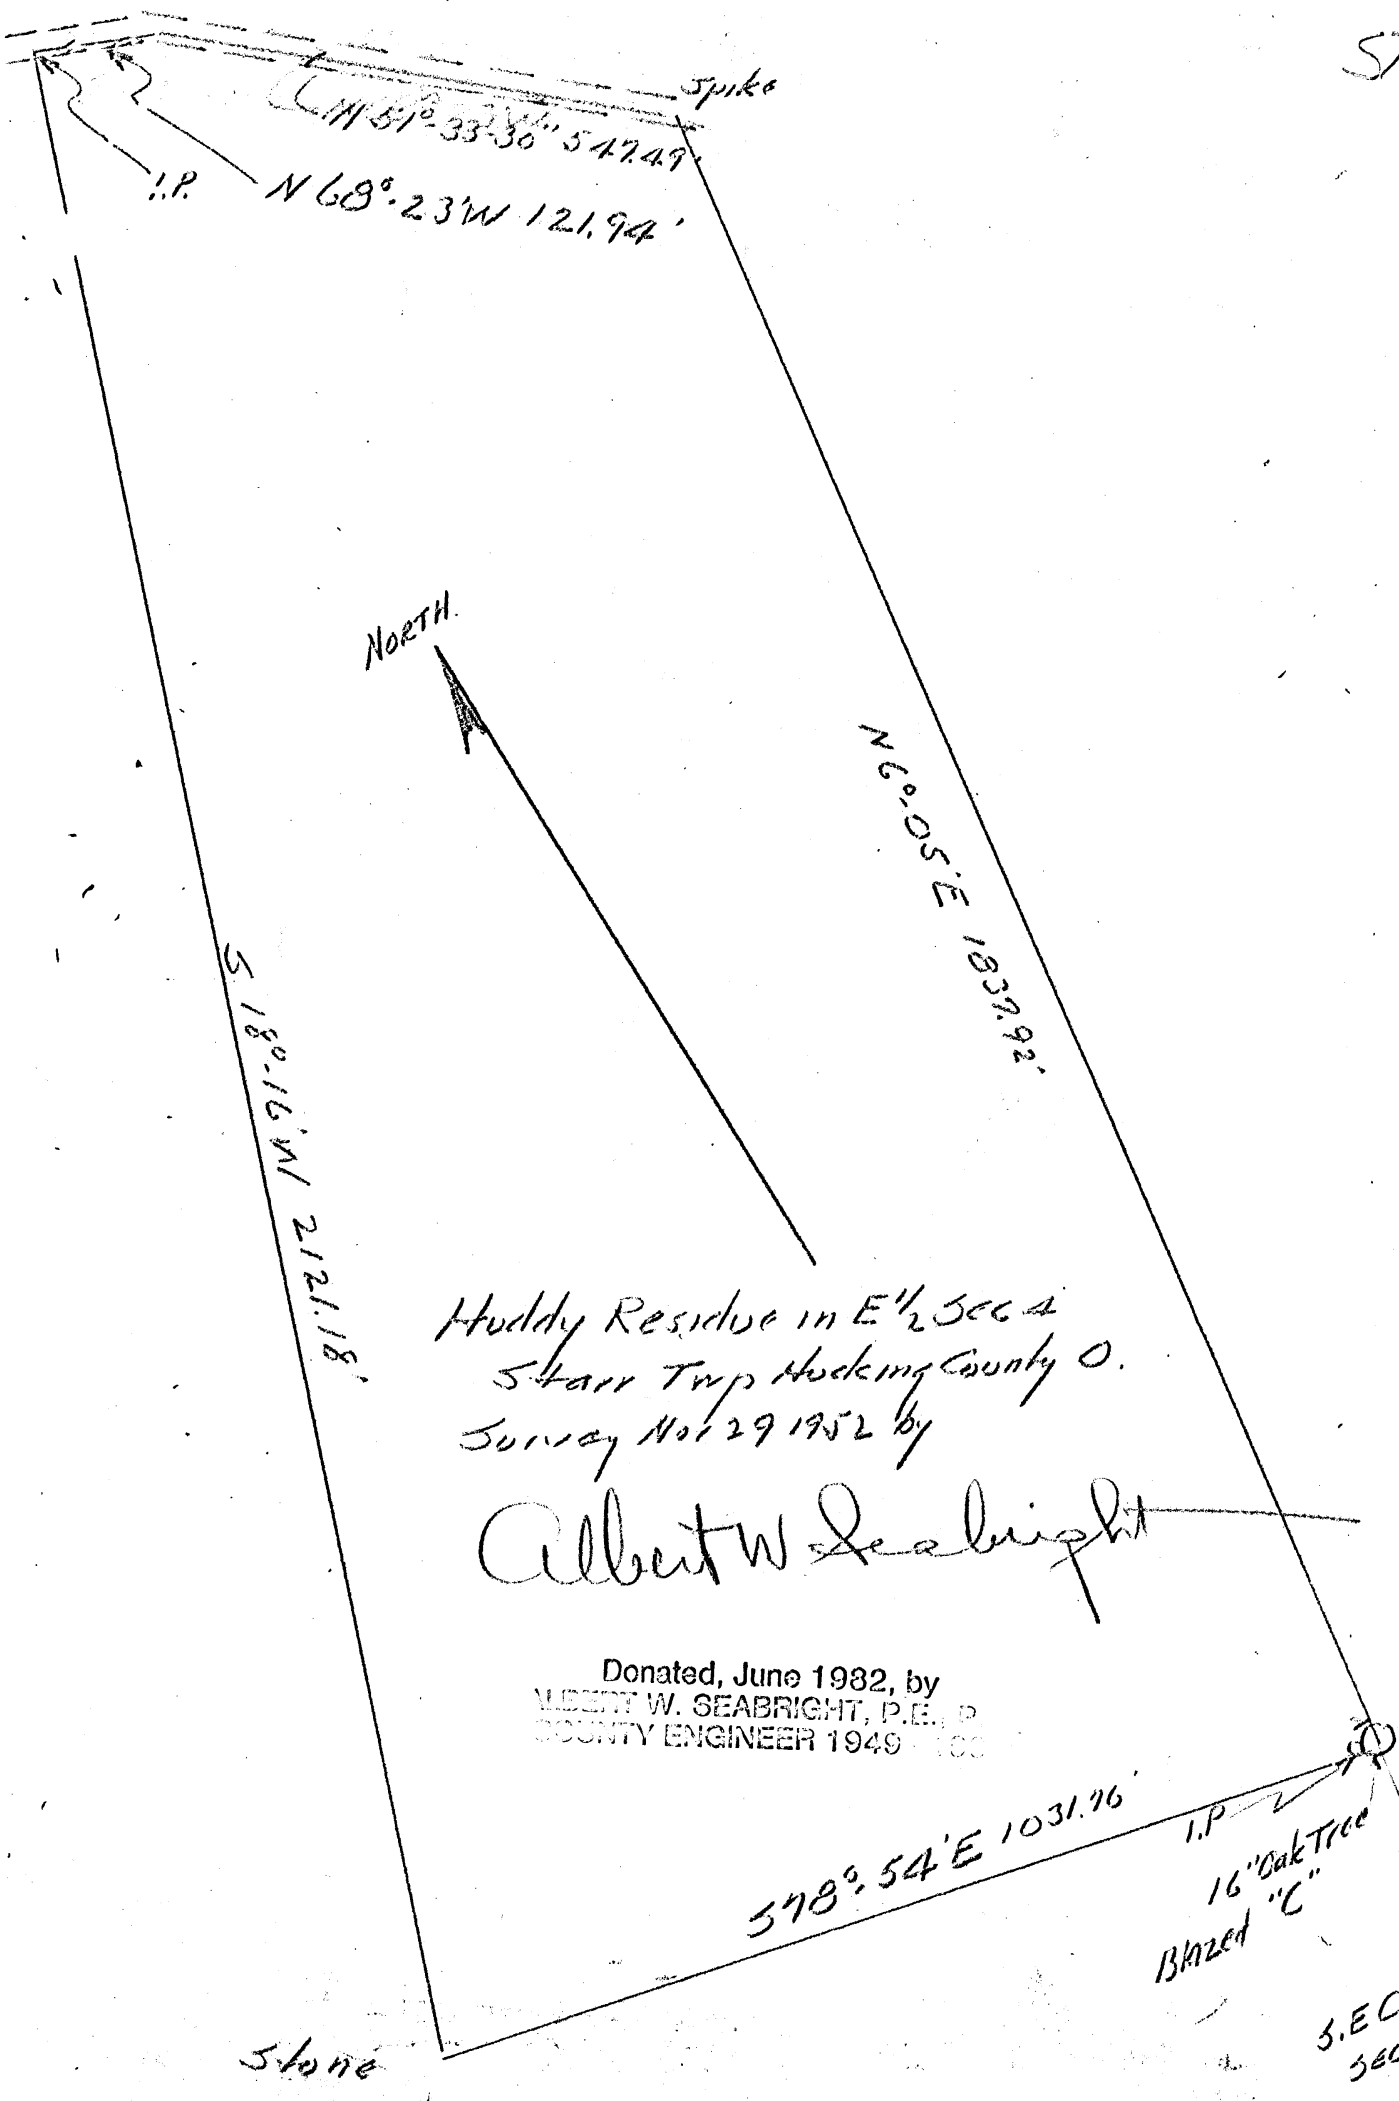 Spike
N 51°-33'-30" 547.49'
I.P.
N 68°-23'W 121.94'
NORTH.
N 6°-05'E 1837.92'
S 18°-16'W 2121.18'
Huddy Residue in E 1/2 Sec 4
Starr Twp Hocking County O.
Survey Nov 29 1952 by
Albert W Seabright
Donated, June 1982, by
ALBERT W. SEABRIGHT, P.E., P.
COUNTY ENGINEER 1949
S 78°-54'E 1031.76'
I.P
16" Oak Tree
Blazed "C"
S.E C
SEC
Stone